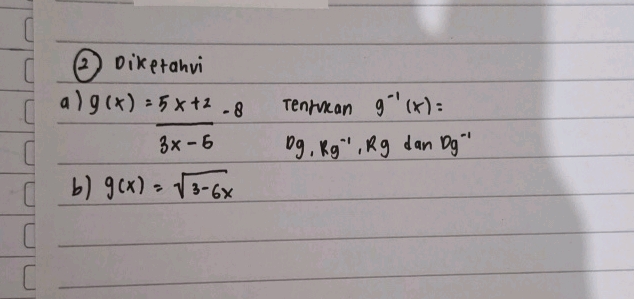 ② Diketahui
a) g(x) = 5x+2 - 8 Tentukan g⁻¹(x) =
3x-6 Dg, Rg⁻¹, Rg dan Dg⁻¹
b) g(x) = √3-6x